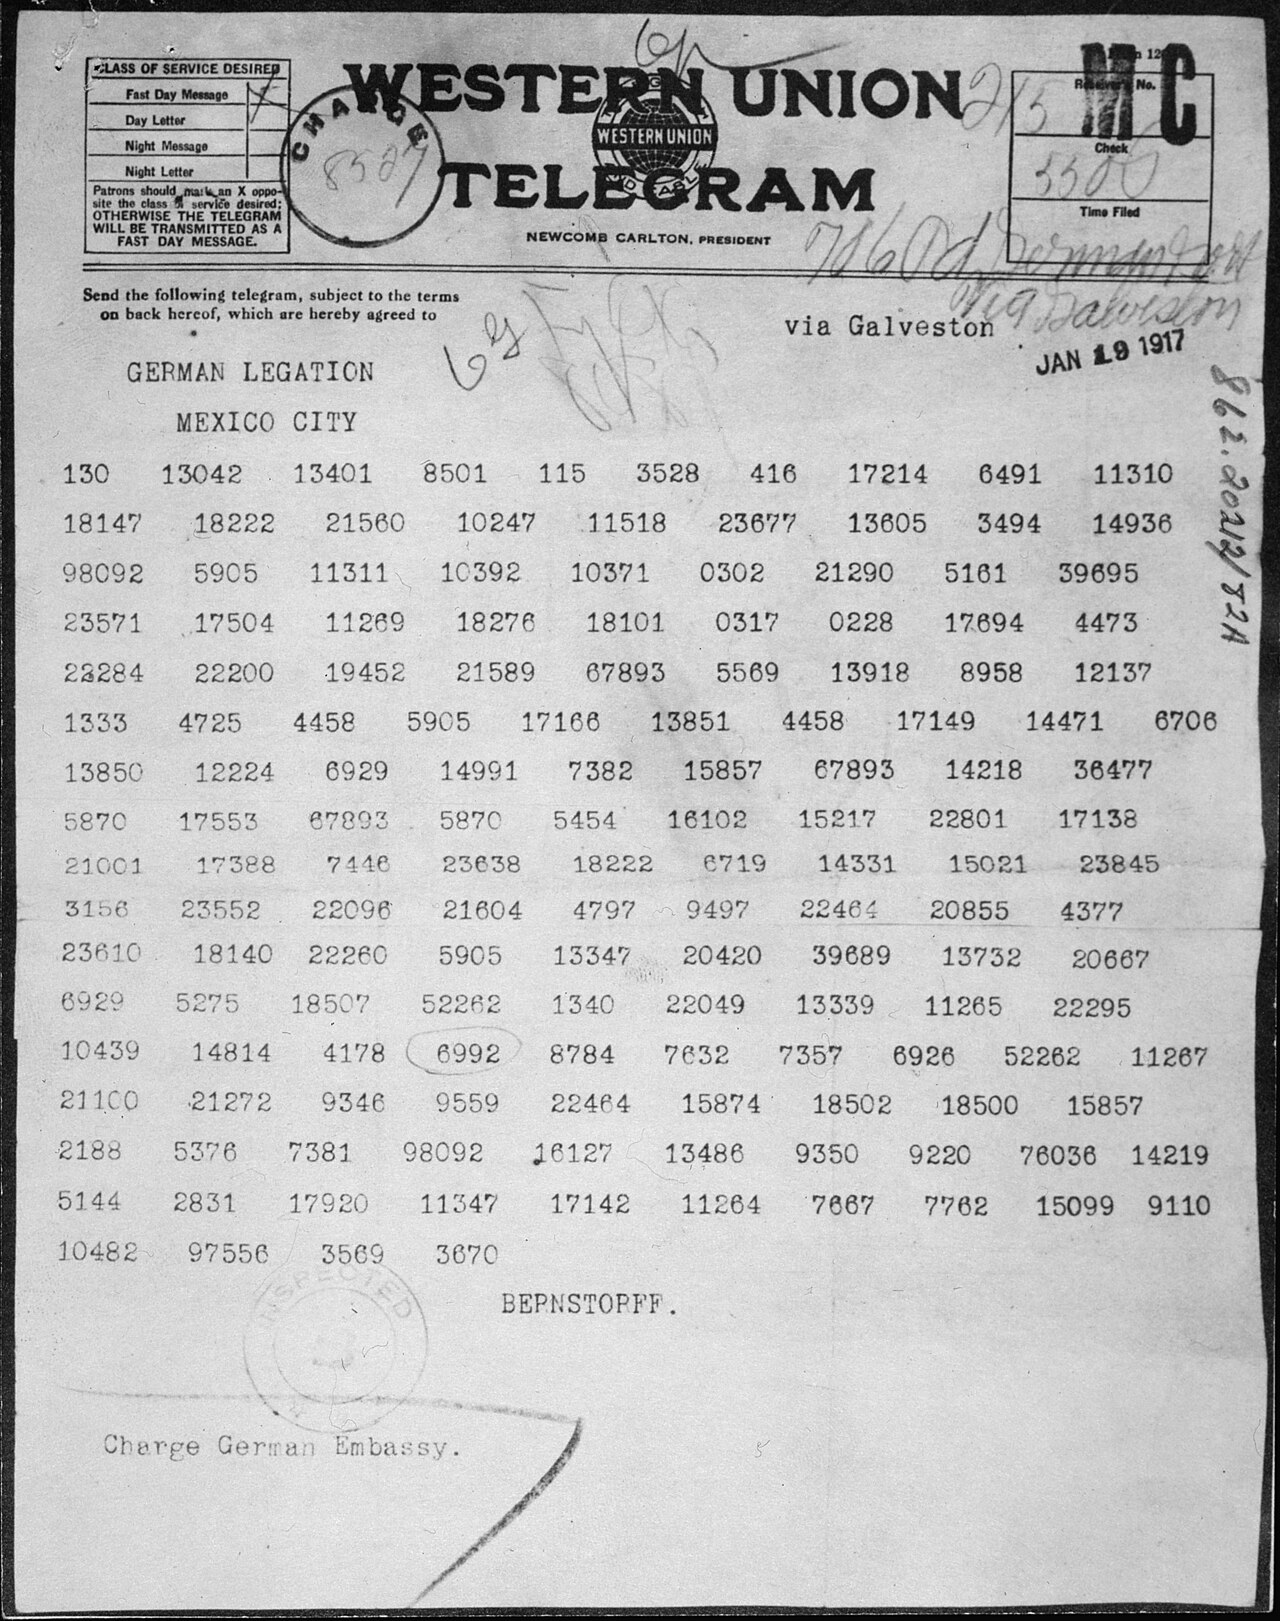 CLASS OF SERVICE DESIRED
Fast Day Message
Day Letter
Night Message
Night Letter
Patrons should mark an X oppo-
site the class of service desired;
OTHERWISE THE TELEGRAM
WILL BE TRANSMITTED AS A
FAST DAY MESSAGE.
CHARGE
8527
WESTERN UNION
WESTERN UNION
TELEGRAM
NEWCOMB CARLTON, PRESIDENT
215
Receiver's No.
Check
Time Filed
Send the following telegram, subject to the terms
on back hereof, which are hereby agreed to
via Galveston
via Galveston
JAN 19 1917
GERMAN LEGATION
MEXICO CITY
862.20212/82A
130 13042 13401 8501 115 3528 416 17214 6491 11310
18147 18222 21560 10247 11518 23677 13605 3494 14936
98092 5905 11311 10392 10371 0302 21290 5161 39695
23571 17504 11269 18276 18101 0317 0228 17694 4473
22284 22200 19452 21589 67893 5569 13918 8958 12137
1333 4725 4458 5905 17166 13851 4458 17149 14471 6706
13850 12224 6929 14991 7382 15857 67893 14218 36477
5870 17553 67893 5870 5454 16102 15217 22801 17138
21001 17388 7446 23638 18222 6719 14331 15021 23845
3156 23552 22096 21604 4797 9497 22464 20855 4377
23610 18140 22260 5905 13347 20420 39689 13732 20667
6929 5275 18507 52262 1340 22049 13339 11265 22295
10439 14814 4178 6992 8784 7632 7357 6926 52262 11267
21100 21272 9346 9559 22464 15874 18502 18500 15857
2188 5376 7381 98092 16127 13486 9350 9220 76036 14219
5144 2831 17920 11347 17142 11264 7667 7762 15099 9110
10482 97556 3569 3670
BERNSTORFF.
INSPECTED
Charge German Embassy.